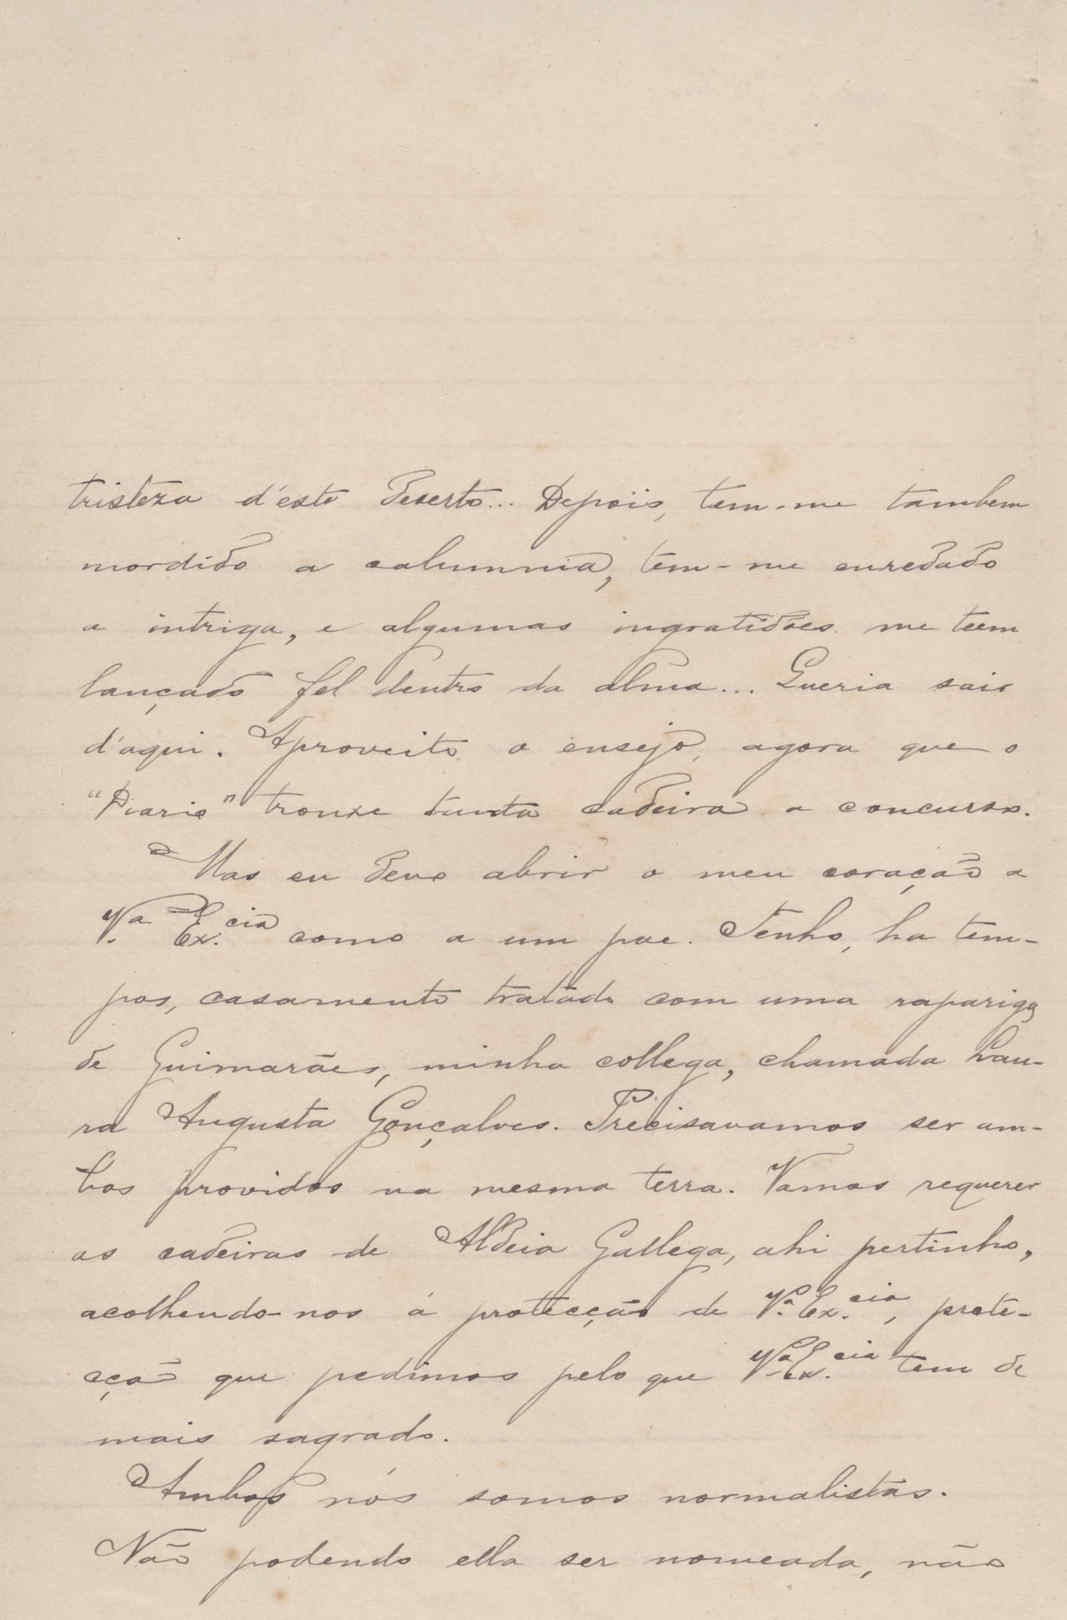 tristeza d'este deserto... Depois, tem-me tambem
mordido a calumnia, tem-me enredado
a intriga, e algumas ingratidões me teem
lançado fel dentro da alma... Queria sair
d'aqui. Aproveito o ensejo, agora que o
"Diario" trouxe tanta cadeira a concurso.
Mas eu devo abrir o meu coração a
V.ª Ex.cia como a um pae. Tenho, ha tem-
pos, casamento tratado com uma rapariga
de Guimarães, minha collega, chamada Lau-
ra Augusta Gonçalves. Precisavamos ser am-
bos providos na mesma terra. Vamos requerer
as cadeiras de Aldeia Gallega, ahi pertinho,
acolhendo-nos á protecção de V.ª Ex.cia, prote-
cção que pedimos pelo que V.ª Ex.cia tem de
mais sagrado.
Ambos nós somos normalistas.
Não podendo ella ser nomeada, não